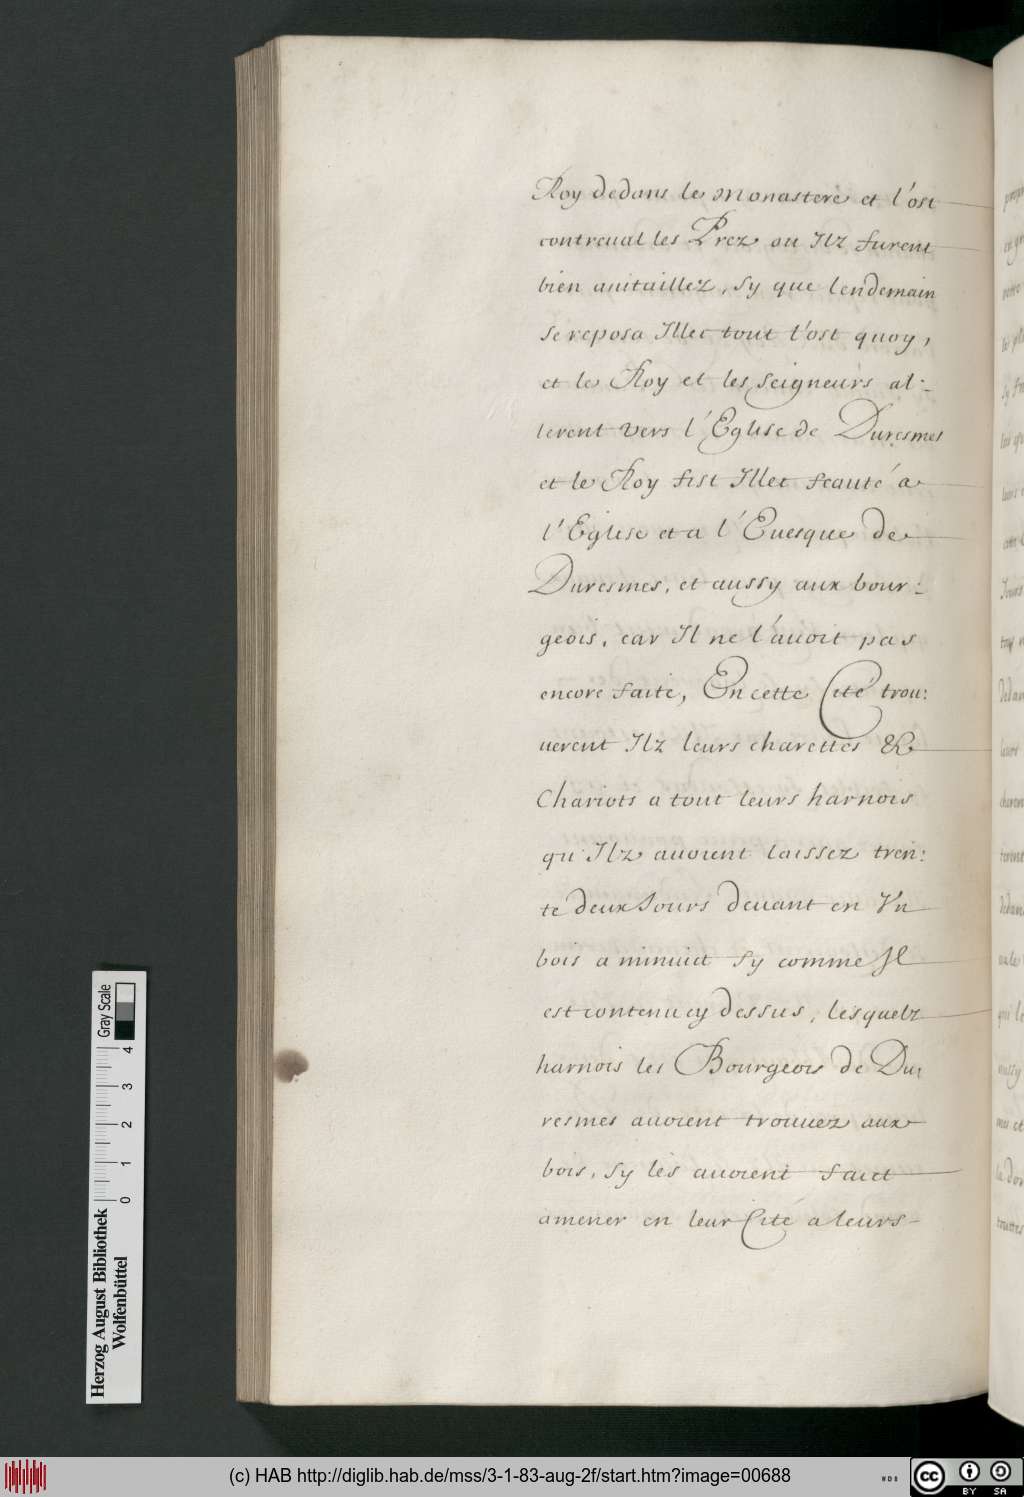 Roy dedans le monastere et l'ost
contreual les Prez ou Ilz furent
bien auitaillez, sy que lendemain
se reposa Illec tout l'ost quoy,
et le Roy et les seigneurs al-
lerent vers l'Eglise de Duresmes
et le Roy fist Illec feauté a
l'Eglise et a l'Euesque de
Duresmes, et aussy aux bour:
geois, car Il ne l'auoit pas
encore faite, En cette Cité trou:
uerent Ilz leurs charettes &
Chariots a tout leurs harnois
qu'Ilz auoient laissez tren:
te deux Jours deuant en Vn
bois a minuict sy comme Il
est contenu cy dessus, lesquelz
harnois les Bourgeois de Du:
resmes auoient trouuez aux
bois, sy les auoient faict
amener en leur Cité a leurs
Herzog August Bibliothek
Wolfenbüttel
0 1 2 3 4
Gray Scale
(c) HAB http://diglib.hab.de/mss/3-1-83-aug-2f/start.htm?image=00688
WDB
cc
BY SA